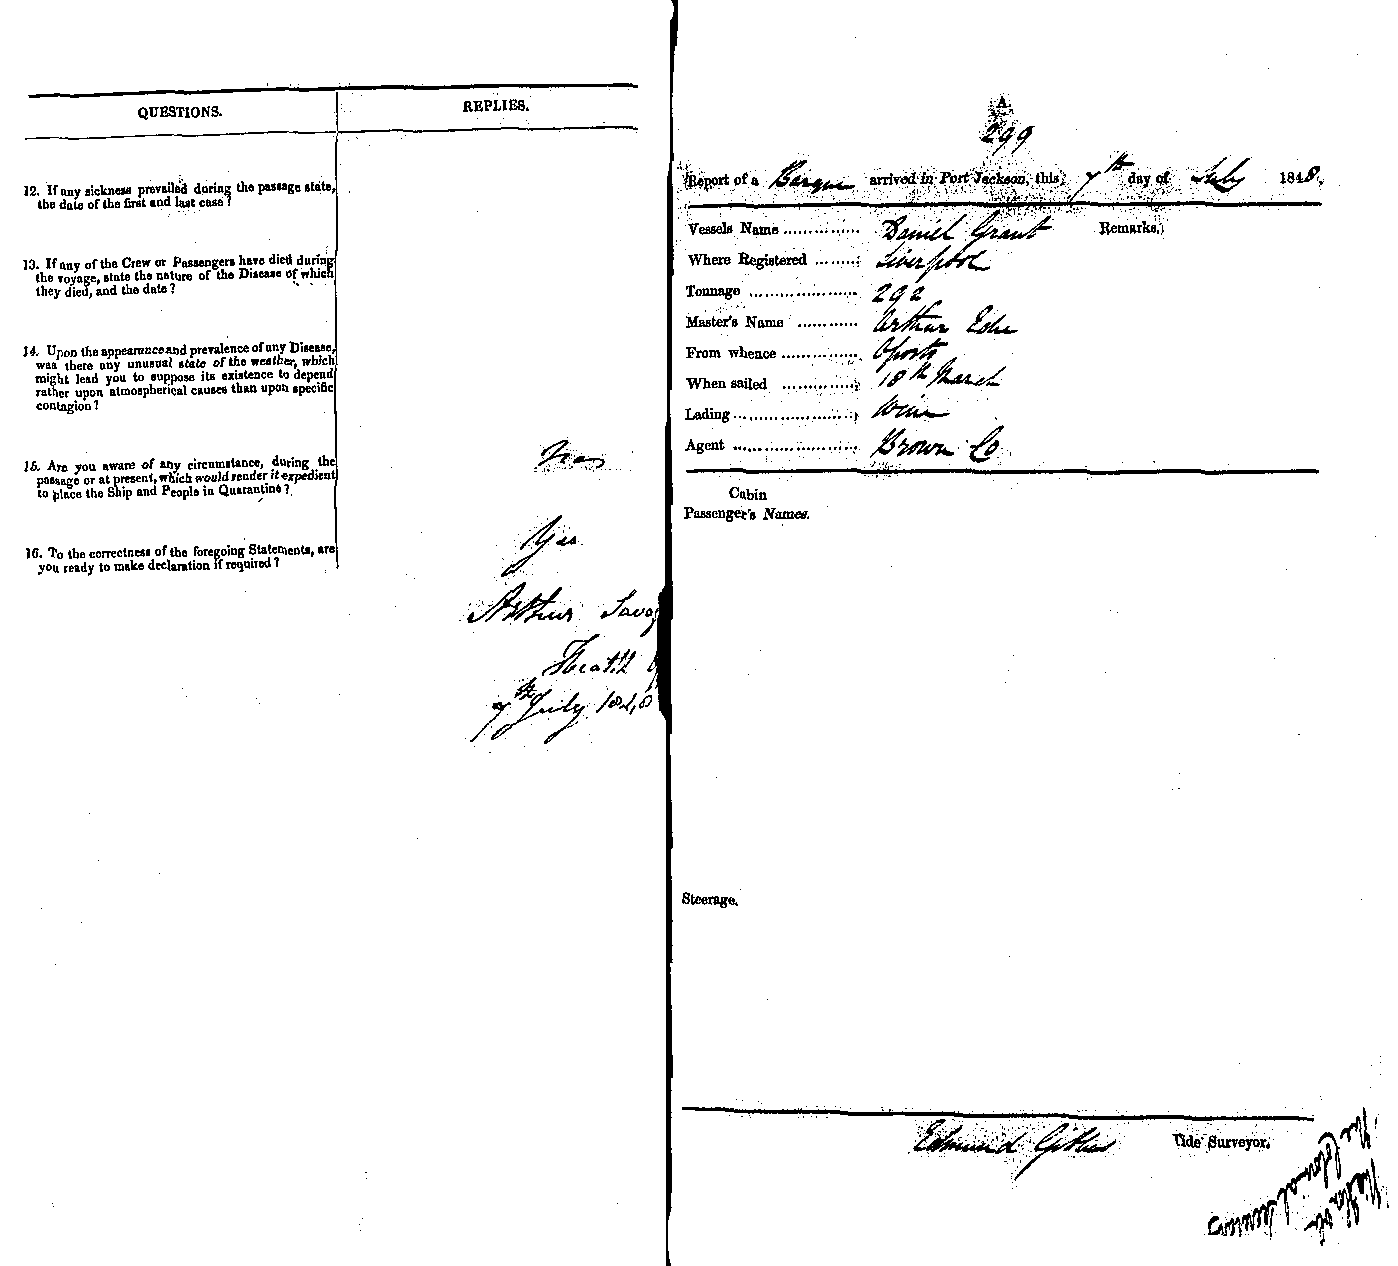 QUESTIONS.
REPLIES.
12. If any sickness prevailed during the passage state,
the date of the first and last case?
13. If any of the Crew or Passengers have died during
the voyage, state the nature of the Disease of which
they died, and the date?
14. Upon the appearance and prevalence of any Disease,
was there any unusual state of the weather, which
might lead you to suppose its existence to depend
rather upon atmospherical causes than upon specific
contagion?
15. Are you aware of any circumstance, during the
passage or at present, which would render it expedient
to place the Ship and People in Quarantine?
16. To the correctness of the foregoing Statements, are
you ready to make declaration if required?
Yes
Arthur Savag
Health
7th July 1848
A.
299
Report of a Barque arrived in Port Jackson, this 7th day of July 1848.
Vessels Name ............... Daniel Grant Remarks.
Where Registered ........ Liverpool
Tonnage .................... 292
Master's Name ........... Arthur
From whence .............. Oporto
When sailed .............. 18th March
Lading ...................... Wine
Agent ....................... Brown Co
Cabin
Passenger's Names.
Steerage.
Edmund Tide Surveyor.
The Colonial